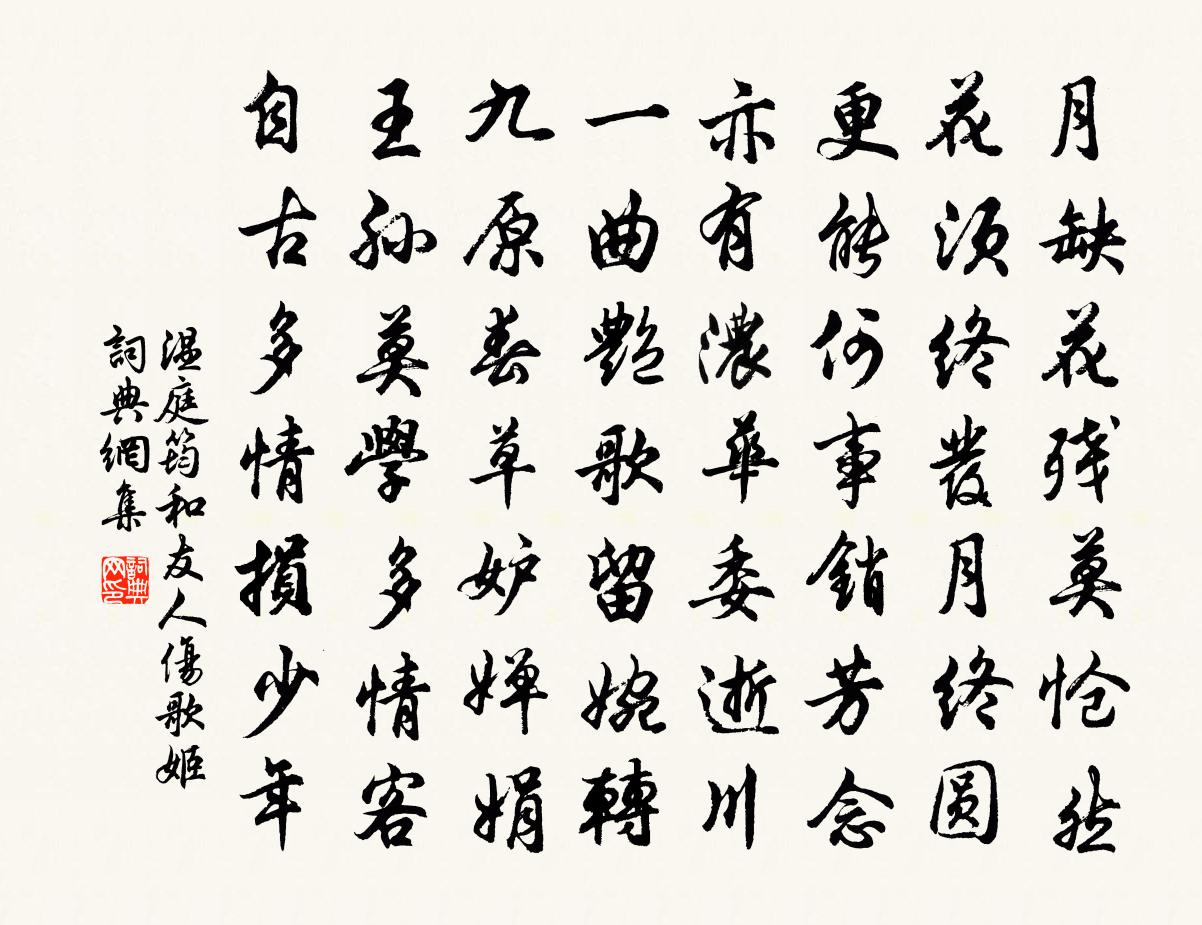 月缺花残莫怆然
花须终發月终圆
更能何事銷芳念
亦有濃華委逝川
一曲艷歌留婉轉
九原春草妒嬋娟
王孫莫學多情客
自古多情損少年
温庭筠和友人傷歌姬
詞典網集
詞典网印